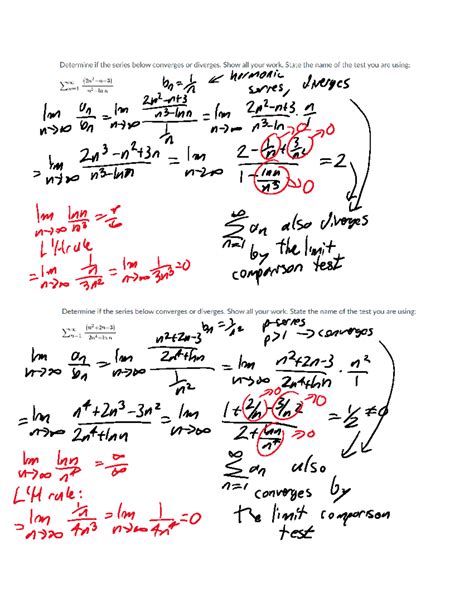 Determine if the series below converges or diverges. Show all your work. State the name of the test you are using:
∑_{n=1}^{∞} (2n²-n-3)/(n³-ln n) bₙ = 1/n ← harmonic series, diverges
lim_{n→∞} aₙ/bₙ = lim_{n→∞} ((2n²-n+3)/(n³-ln n))/(1/n) = lim_{n→∞} (2n²-n+3)/(n³-ln) · n/1
= lim_{n→∞} (2n³-n²+3n)/(n³-ln n) = lim_{n→∞} (2 - 1/n + 3/n²)/(1 - ln n/n³) = 2
→0 →0 →0
lim_{n→∞} ln n/n³ =
L'H rule
= lim_{n→∞} (1/n)/(3n²) = lim_{n→∞} 1/(3n³) = 0
∑_{n=1}^{∞} aₙ also diverges
by the limit
comparison test
Determine if the series below converges or diverges. Show all your work. State the name of the test you are using:
∑_{n=1}^{∞} (n²+2n-3)/(2n⁴+ln n) bₙ = 1/n² p-series
p>1 → converges
lim_{n→∞} aₙ/bₙ = lim_{n→∞} ((n²+2n-3)/(2n⁴+ln n))/(1/n²) = lim_{n→∞} (n²+2n-3)/(2n⁴+ln n) · n²/1
= lim_{n→∞} (n⁴+2n³-3n²)/(2n⁴+ln n) = lim_{n→∞} (1 + 2/n - 3/n²)/(2 + ln n/n⁴) = 1/2 ≠0
→0 →0 →0
lim_{n→∞} ln n/n⁴ = ∞/∞
L'H rule:
= lim_{n→∞} (1/n)/(4n³) = lim_{n→∞} 1/(4n⁴) = 0
∑_{n=1}^{∞} aₙ also
converges by
the limit comparison
test